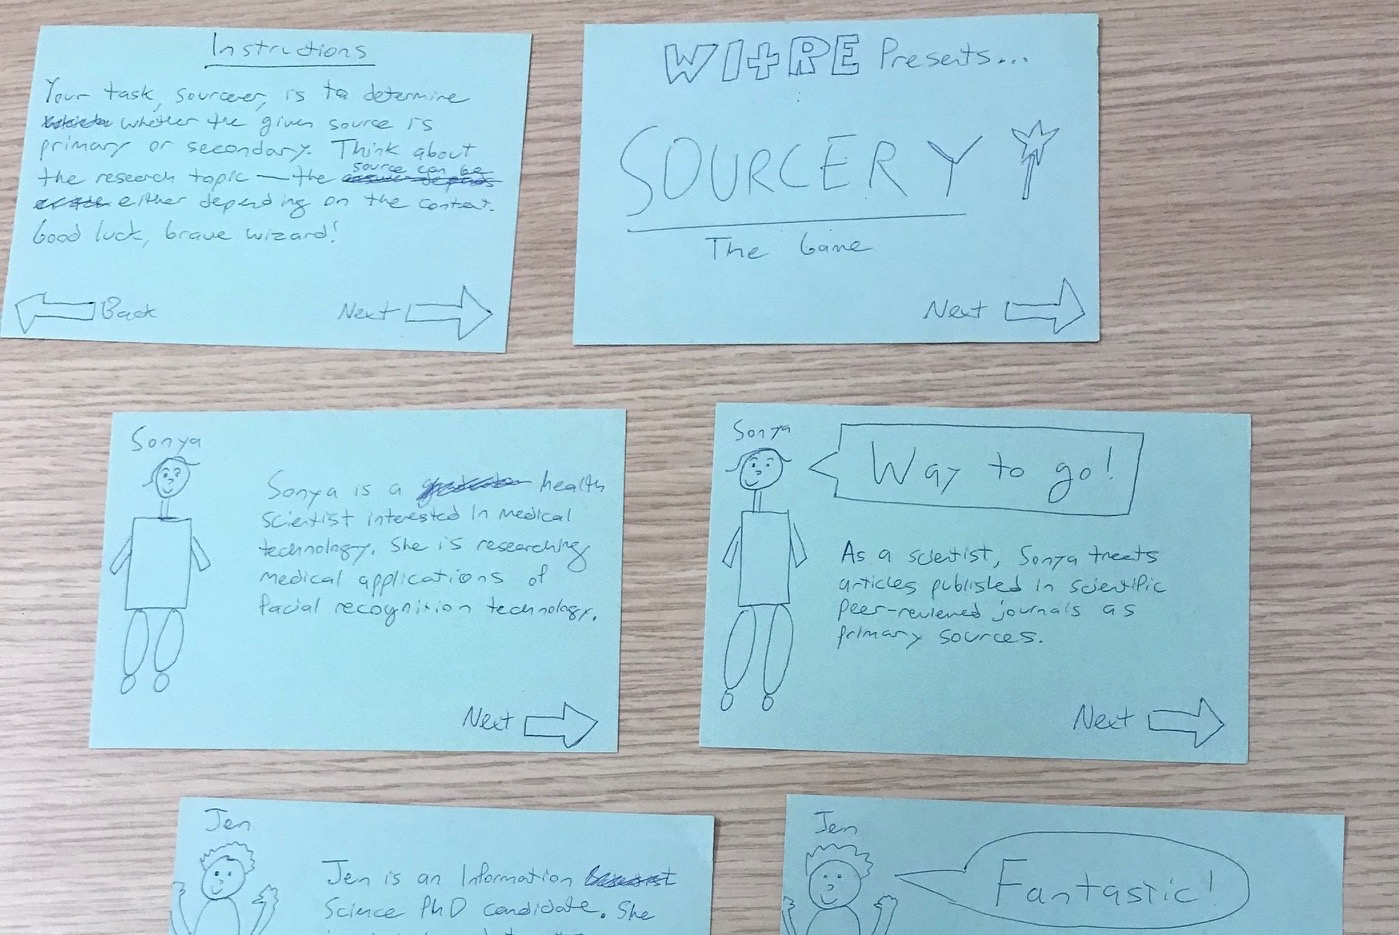 Instructions
Your task, sourcerer, is to determine
whether the given source is
primary or secondary. Think about
the research topic — the source can be
either depending on the context.
Good luck, brave wizard!
Back
Next
WI+RE Presents...
SOURCERY
The Game
Next
Sonya
Sonya is a health
scientist interested in medical
technology. She is researching
medical applications of
facial recognition technology.
Next
Sonya
Way to go!
As a scientist, Sonya treats
articles published in scientific
peer-reviewed journals as
primary sources.
Next
Jen
Jen is an Information
Science PhD candidate. She
Jen
Fantastic!